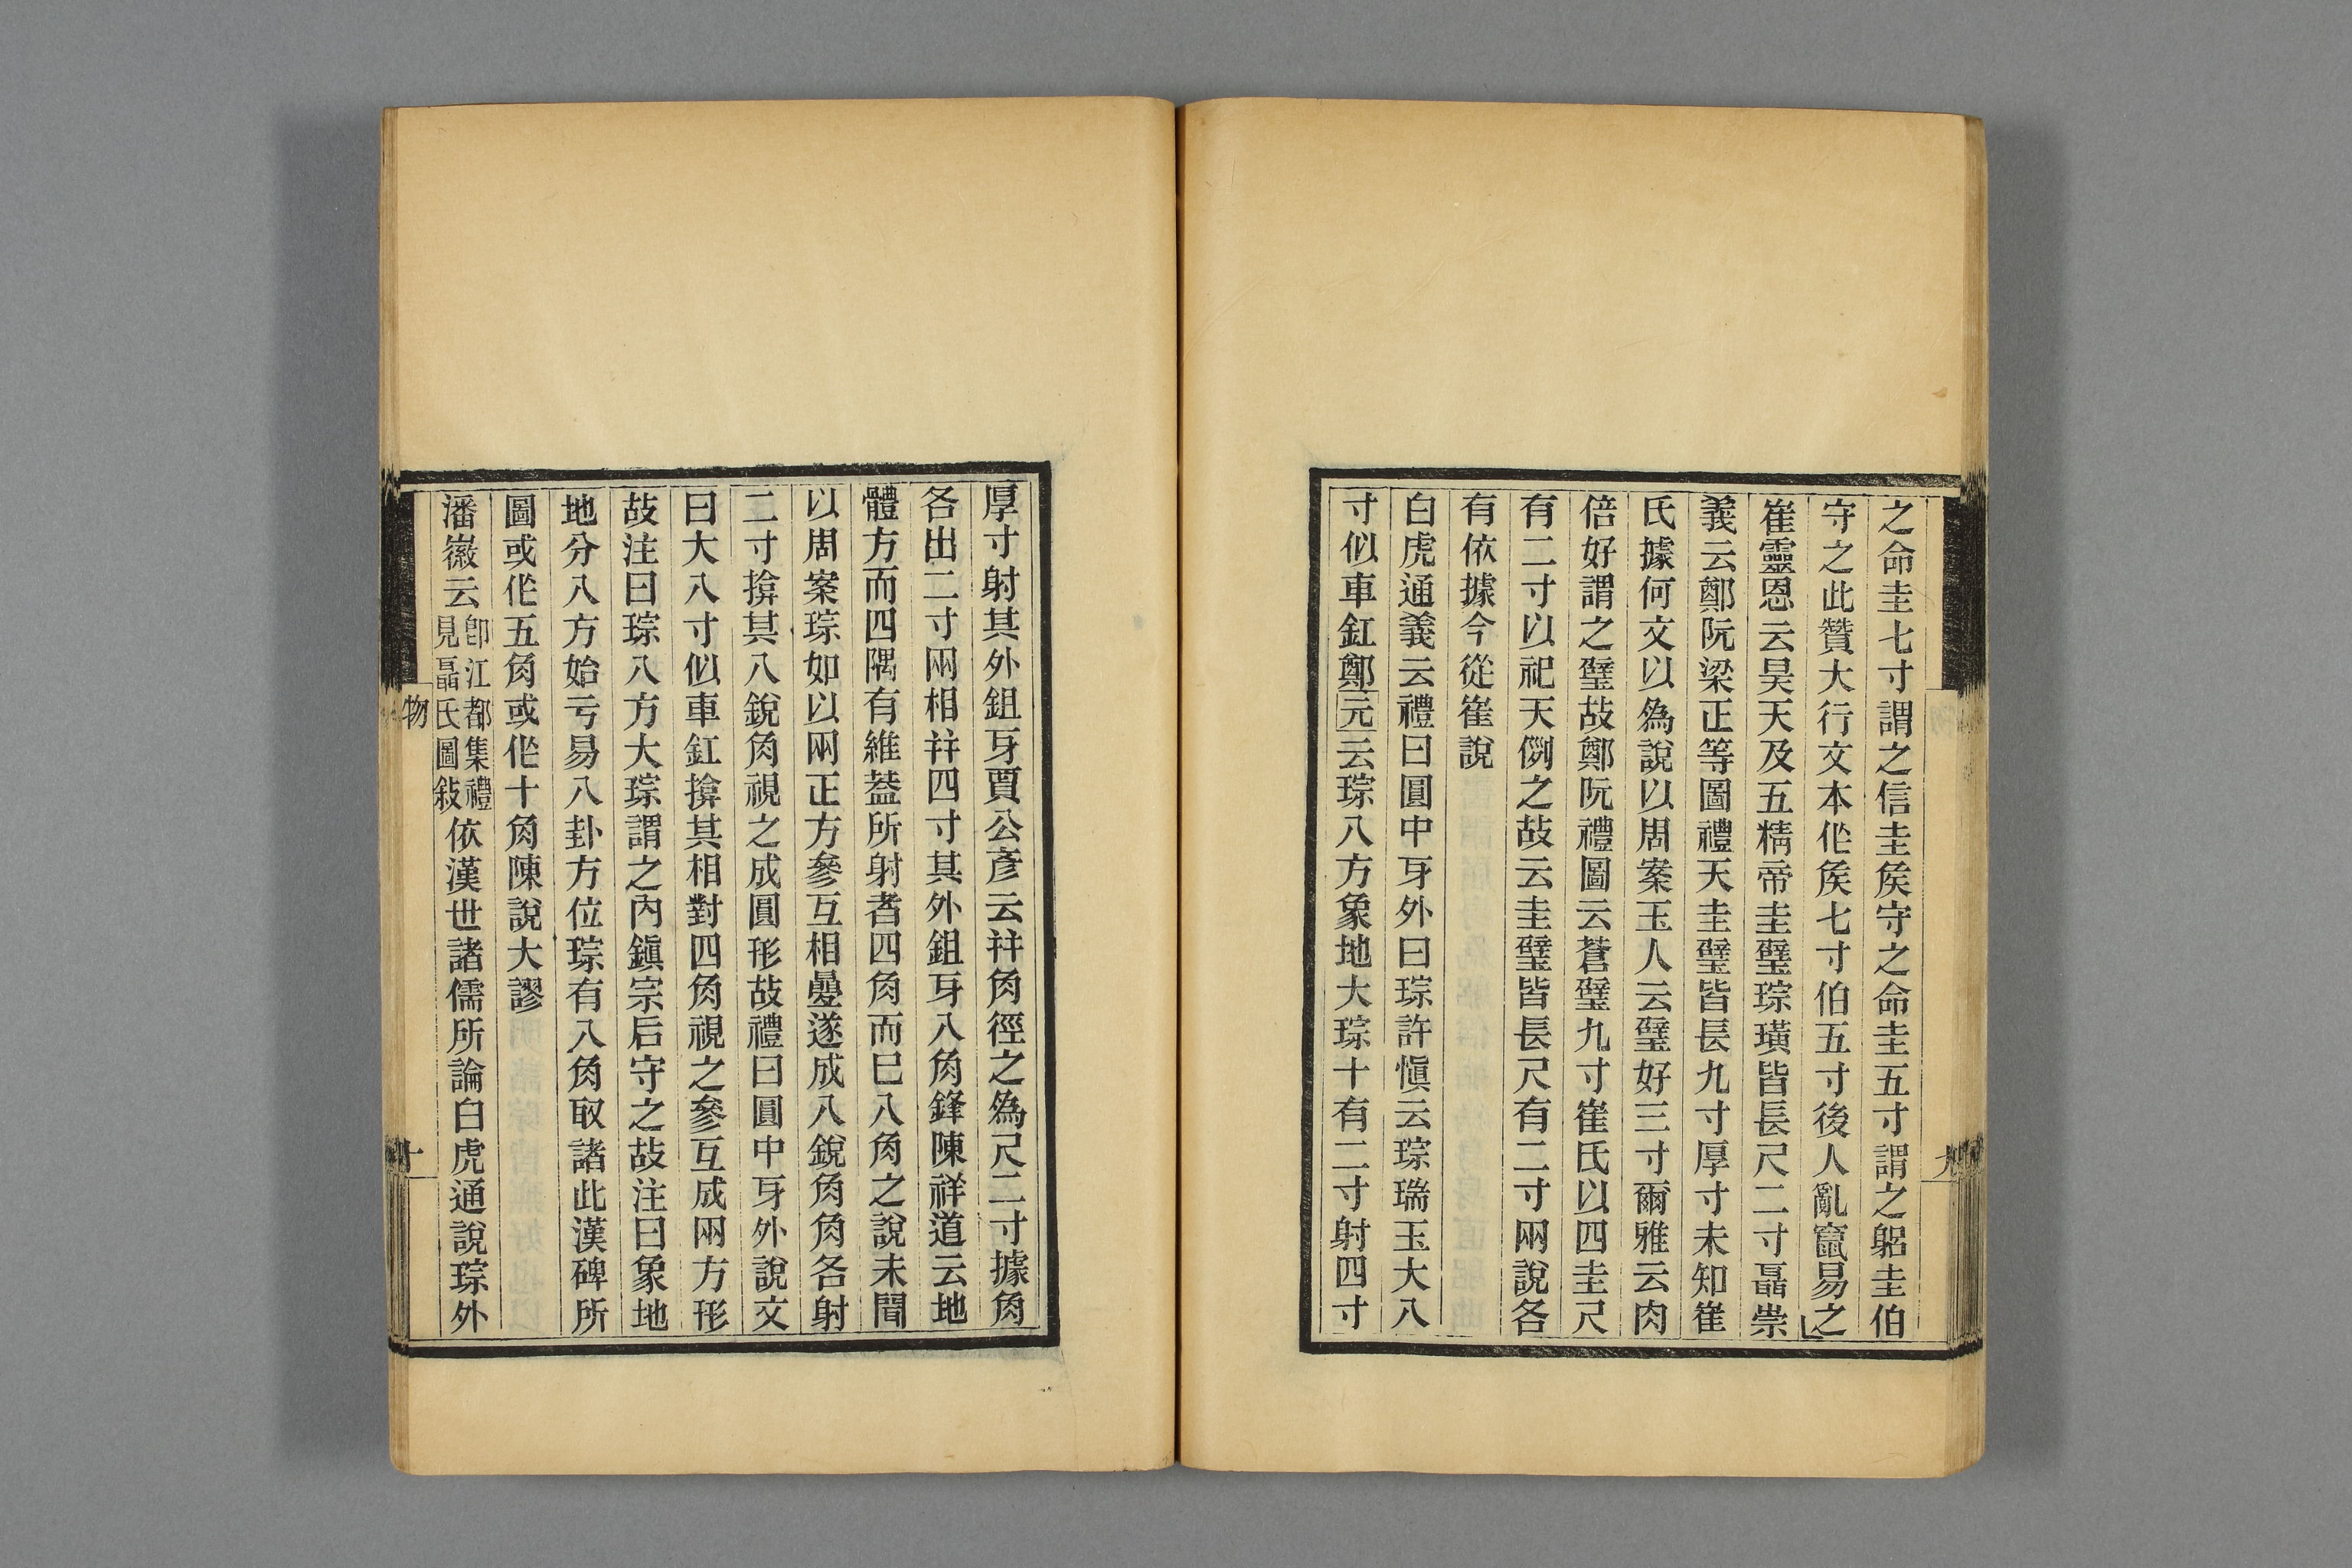 之命圭七寸謂之信圭矦守之命圭五寸謂之躳圭伯
守之此贊大行文本作矦七寸伯五寸後人亂竄易之
崔靈恩云昊天及五精帝圭璧琮璜皆長尺二寸聶崇
義云鄭阮梁正等圖禮天圭璧皆長九寸厚寸未知崔
氏據何文以爲說以周案玉人云璧好三寸爾雅云肉
倍好謂之璧故鄭阮禮圖云蒼璧九寸崔氏以四圭尺
有二寸以祀天例之故云圭璧皆長尺有二寸兩說各
有依據今從崔說
白虎通義云禮曰圓中牙外曰琮許愼云琮瑞玉大八
寸似車釭鄭元云琮八方象地大琮十有二寸射四寸
厚寸射其外鉏牙賈公彥云幷角徑之爲尺二寸據角
各出二寸兩相幷四寸其外鉏牙八角鋒陳祥道云地
體方而四隅有維葢所射者四角而巳八角之說未聞
以周案琮如以兩正方參互相曡遂成八銳角角各射
二寸揜其八銳角視之成圓形故禮曰圓中牙外說文
曰大八寸似車釭揜其相對四角視之參互成兩方形
故注曰琮八方大琮謂之內鎭宗后守之故注曰象地
地分八方始亏易八卦方位琮有八角取諸此漢碑所
圖或作五角或作十角陳說大謬
潘徽云卽江都集禮見聶氏圖敍依漢世諸儒所論白虎通說琮外
物
十
九